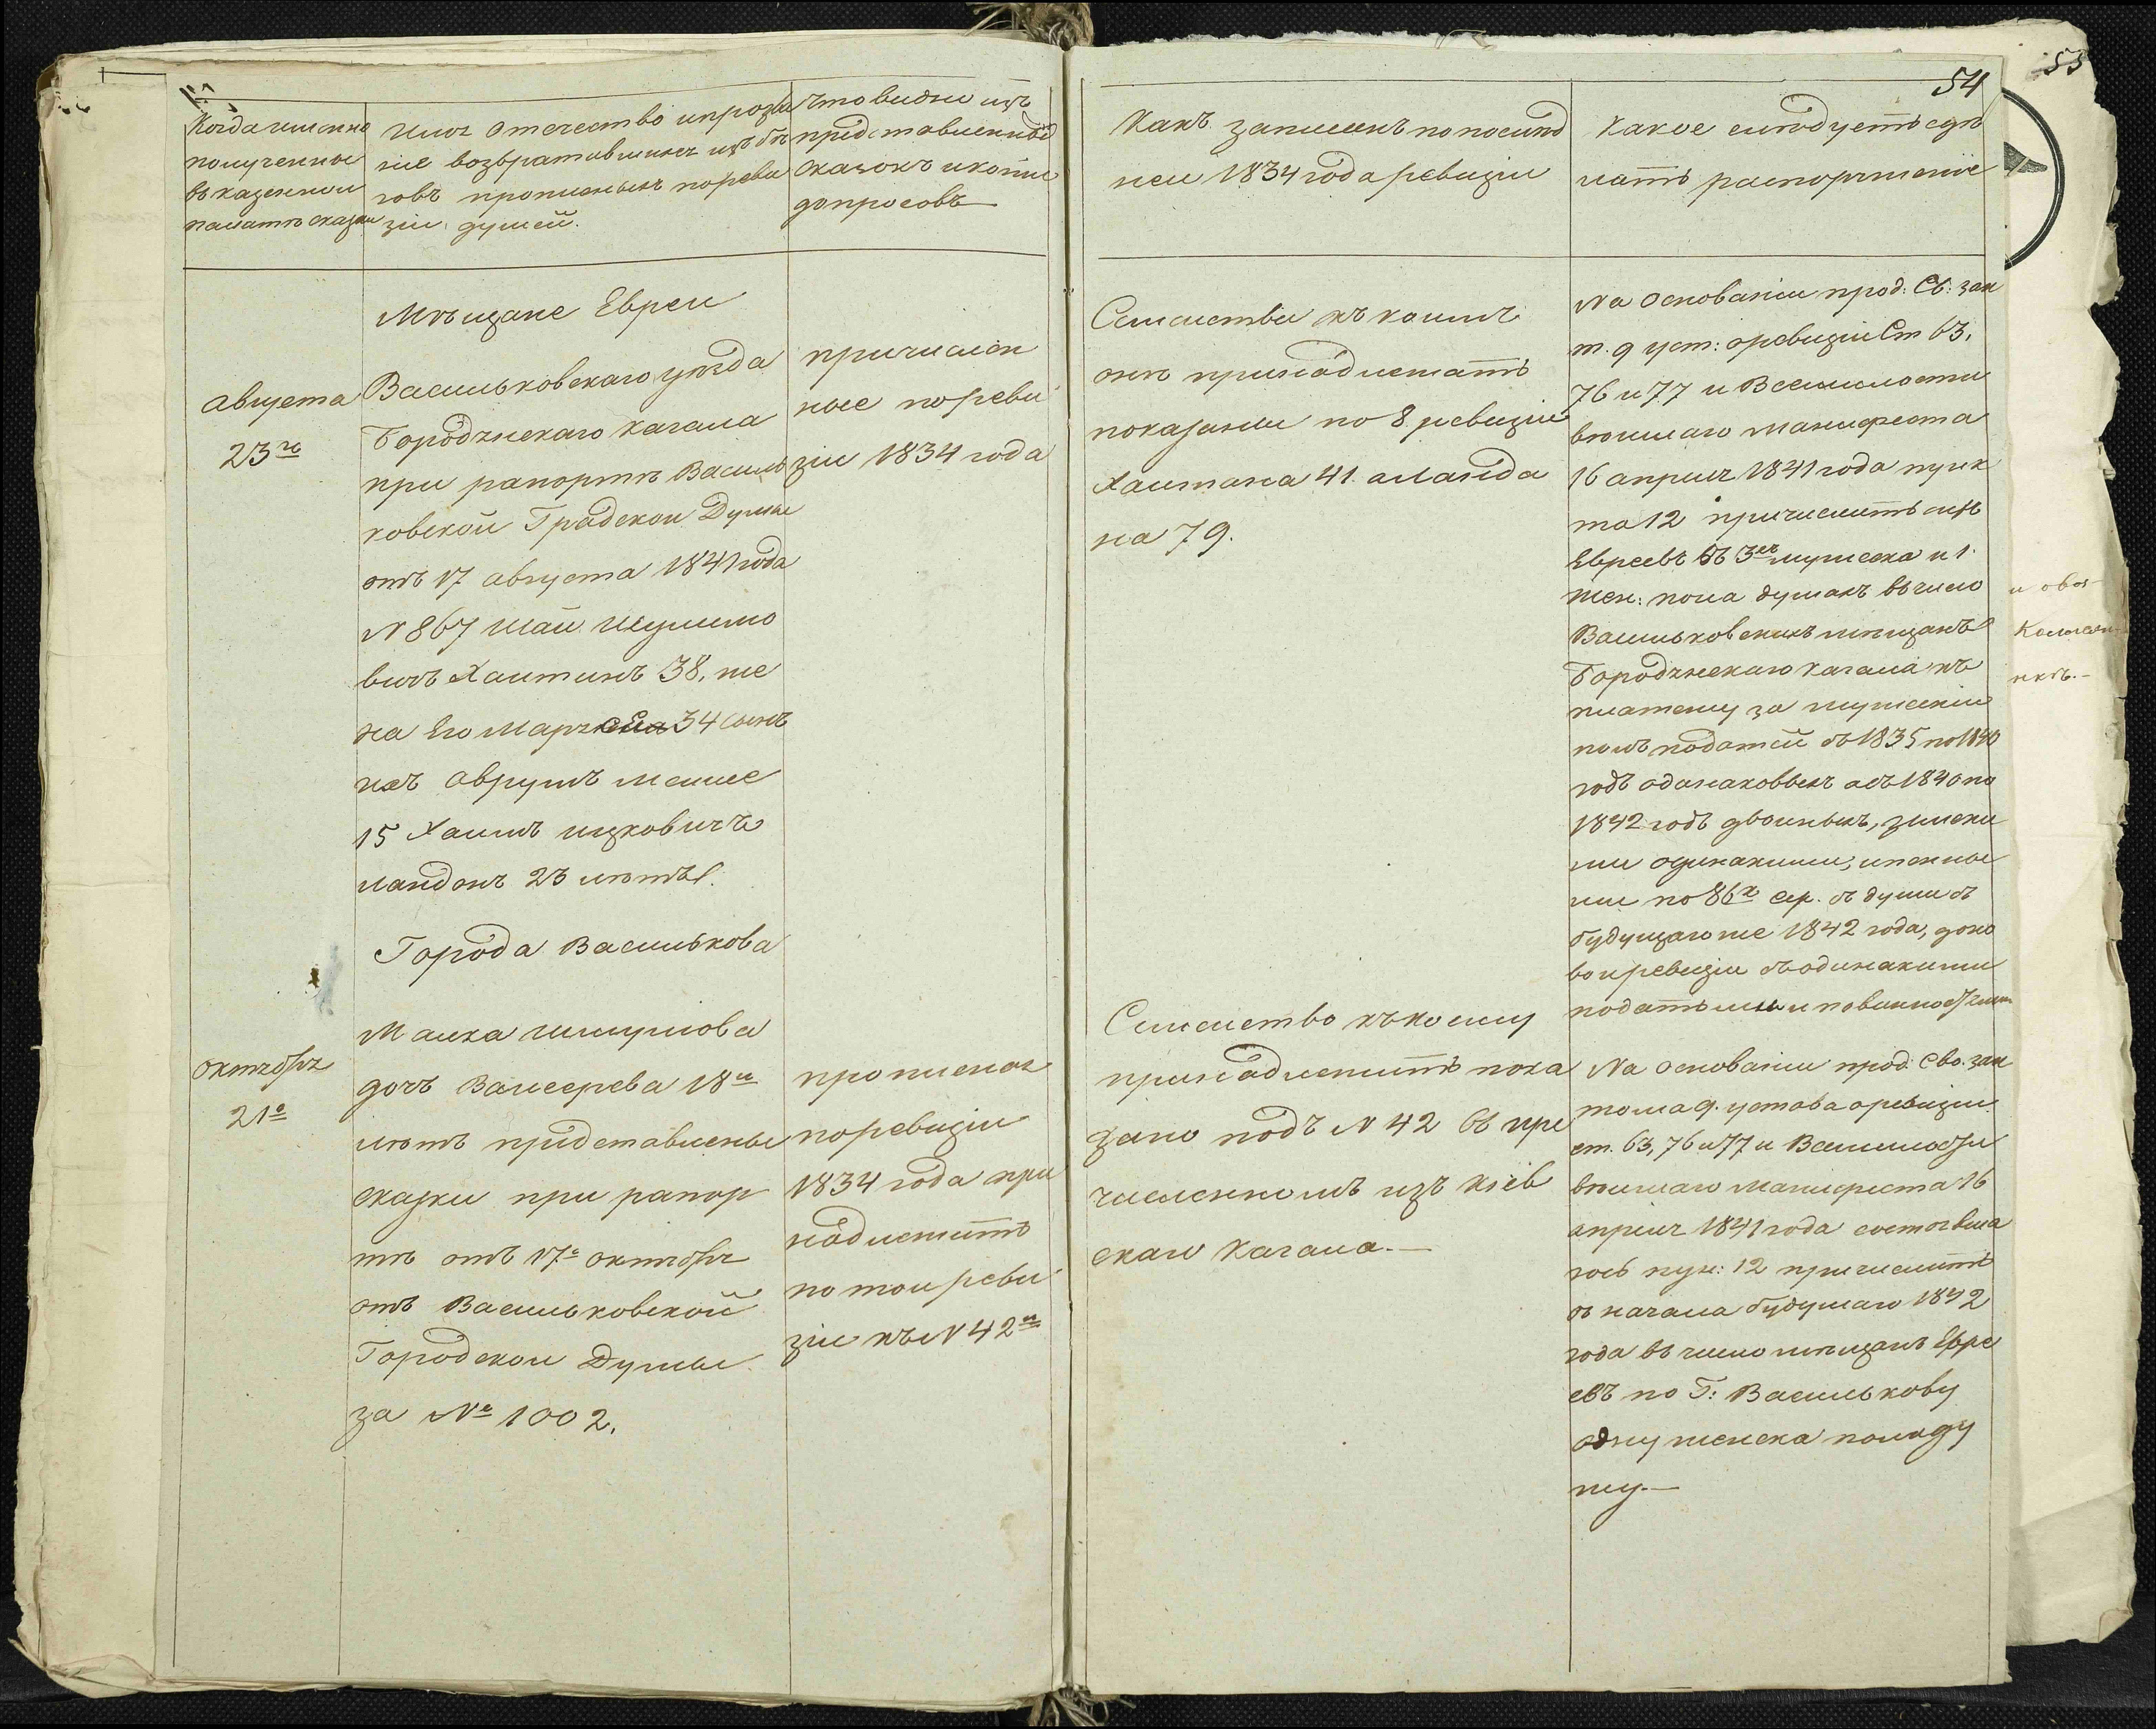 54
55
Когда именно
полученное
въ казенной
палатѣ сказки
Имя отечество и прозва
ніе возвратившихся изъ бѣ
говъ прописныхъ по реви
зіи душей.
Что видно изъ
представленныхъ
сказокъ и копіи
допросовъ
Какъ записанъ по послѣд
ней 1834 года ревизіи
Какое слѣдуетъ сдѣ
лать распоряженіе
Августа
23го
Мѣщане Евреи
Васильковскаго уѣзда
Бородянскаго Кагала
при рапортѣ Василь
ковской Градской Думы
отъ 17 августа 1841 года
N 867 Шаи Шулимо
вичъ Хаитинъ 38, же
на Его Марья 34 сынъ
ихъ Аврумъ Меише
15 Хаимъ Ицковичъ
Ландонъ 23 лѣтъ.
причислен
ные по реви
зіи 1834 года
Семействы къ коимъ
онѣ принадлежатъ
показаны по 8 ревизіи
Хаитана 41. а Ланда
на 79.
На основаніи прод: Св: зак
т. 9 уст: о ревизіи Ст 63,
76 и 77 и Всемилости
вѣйшаго манифеста
16 апрѣля 1841 года пунк
та 12 причислить сихъ
Евреевъ въ 3ехъ мужеска и 1.
жен: пола душахъ въ число
Васильковскихъ мѣщанъ
Бородянскаго кагала къ
платежу за мужескій
полъ податей съ 1835 по 1840
годъ одинаковыхъ а съ 1840 по
1842 годъ двойныхъ, земски
ми одинакими, и
ми по 86х сер. съ души съ
будущаго же 1842 года, до но
вой ревизіи съ одинакими
податьми и повинностями
Города Василькова
Октября
21е
Малка Шмулова
дочь Ваисерева 18и
лѣтъ представлены
сказки при рапор
тѣ отъ 17е октября
отъ Васильковской
Городской Думы
за №е 1002.
прописная
по ревизіи
1834 года при
надлежитъ
по той реви
зіи къ N 42и
Семейство къ коему
принадлежитъ пока
зано подъ N 42 въ при
численномъ изъ Кіев
скаго Кагала.—
На основаніи прод: Сво. зак
тома 9. устава о ревизіи
ст. 63, 76 и 77 и Всемилости
вѣйшаго манифеста 16
апрѣля 1841 года состоявша
гось пун: 12 причислить
съ начала будущаго 1842
года въ число мѣщанъ Евре
евъ по Г: Василькову
одну женска пола ду
шу.—